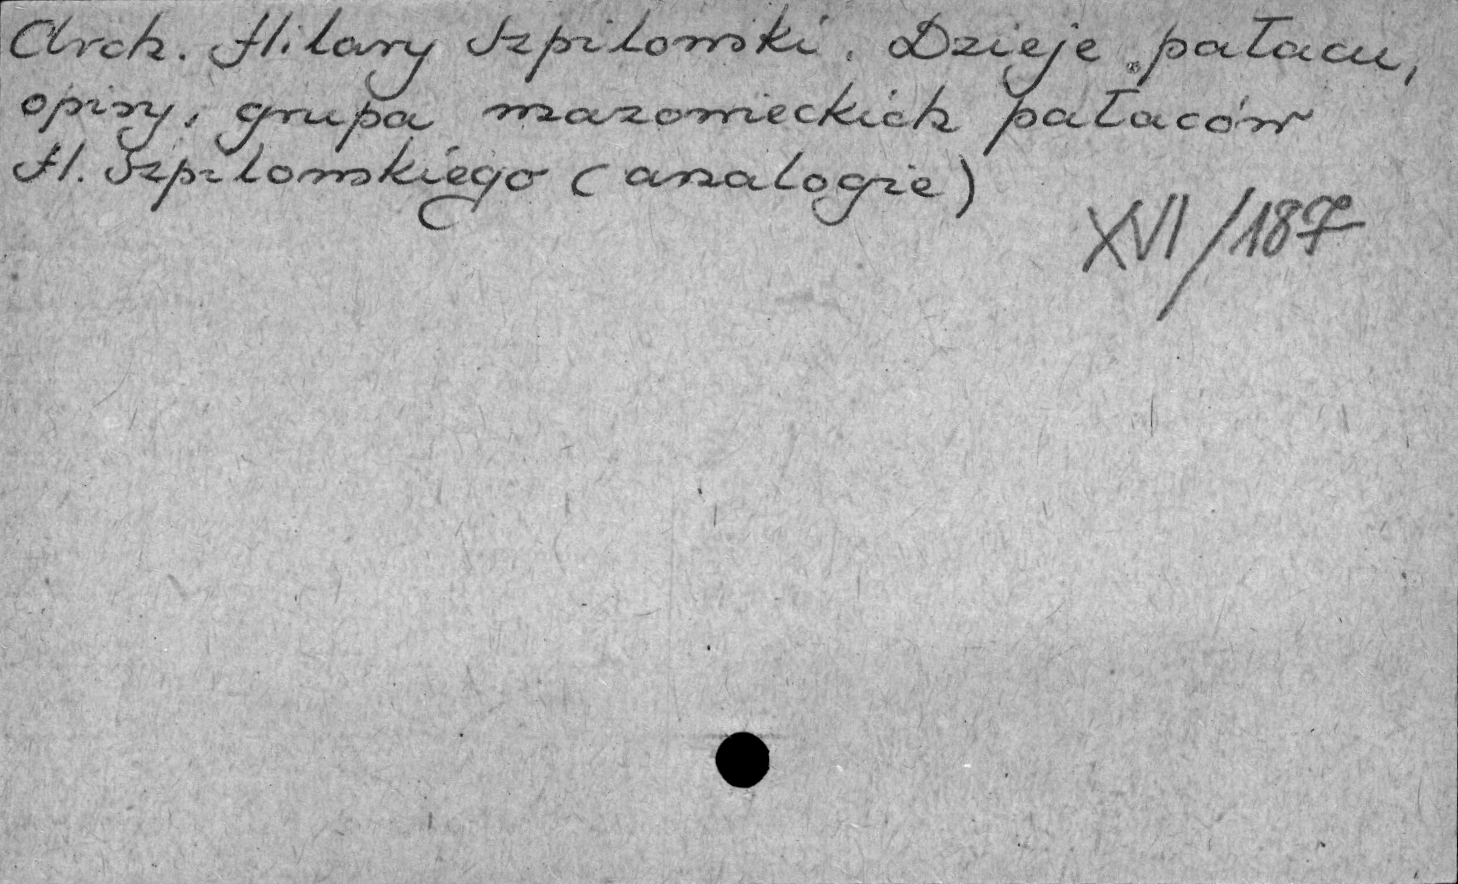 Arch. Hilary Szpilowski. Dzieje pałacu,
opisy, grupa mazowieckich pałaców
H. Szpilowskiego (analogie)
XVI/187